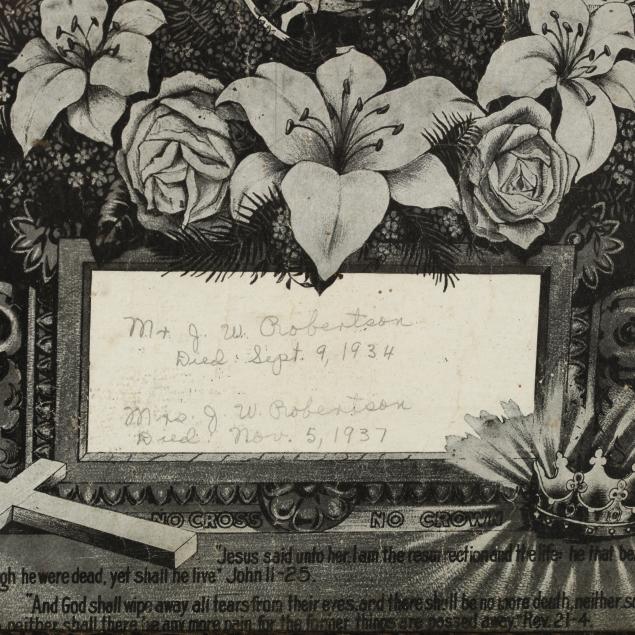 Mr J. W. Robertson
Died. Sept. 9, 1934
Mrs. J. W. Robertson
Died. Nov. 5, 1937
NO CROSS NO CROWN
"Jesus said unto her, I am the resurrection and the life: he that
gh he were dead, yet shall he live" John 11-25.
"And God shall wipe away all tears from their eyes, and there shall be no more death, neither
neither shall there be any more pain, for the former things are passed away." Rev. 21-4.